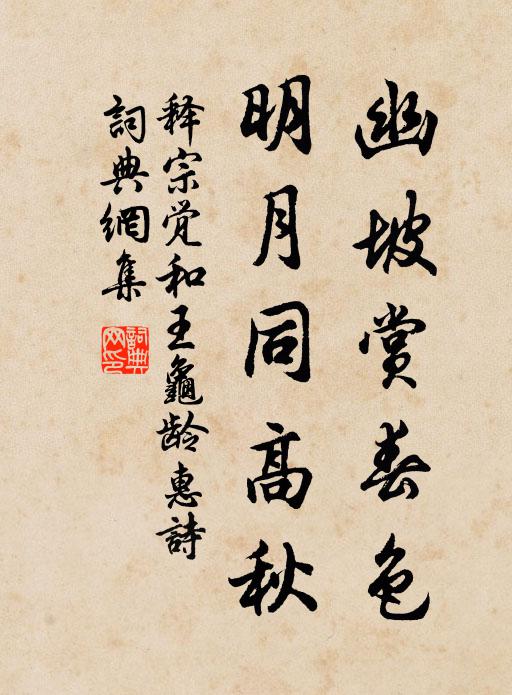 幽坡赏春色
明月同高秋
释宗觉和王龜龄惠詩
詞典網集
詞典网印